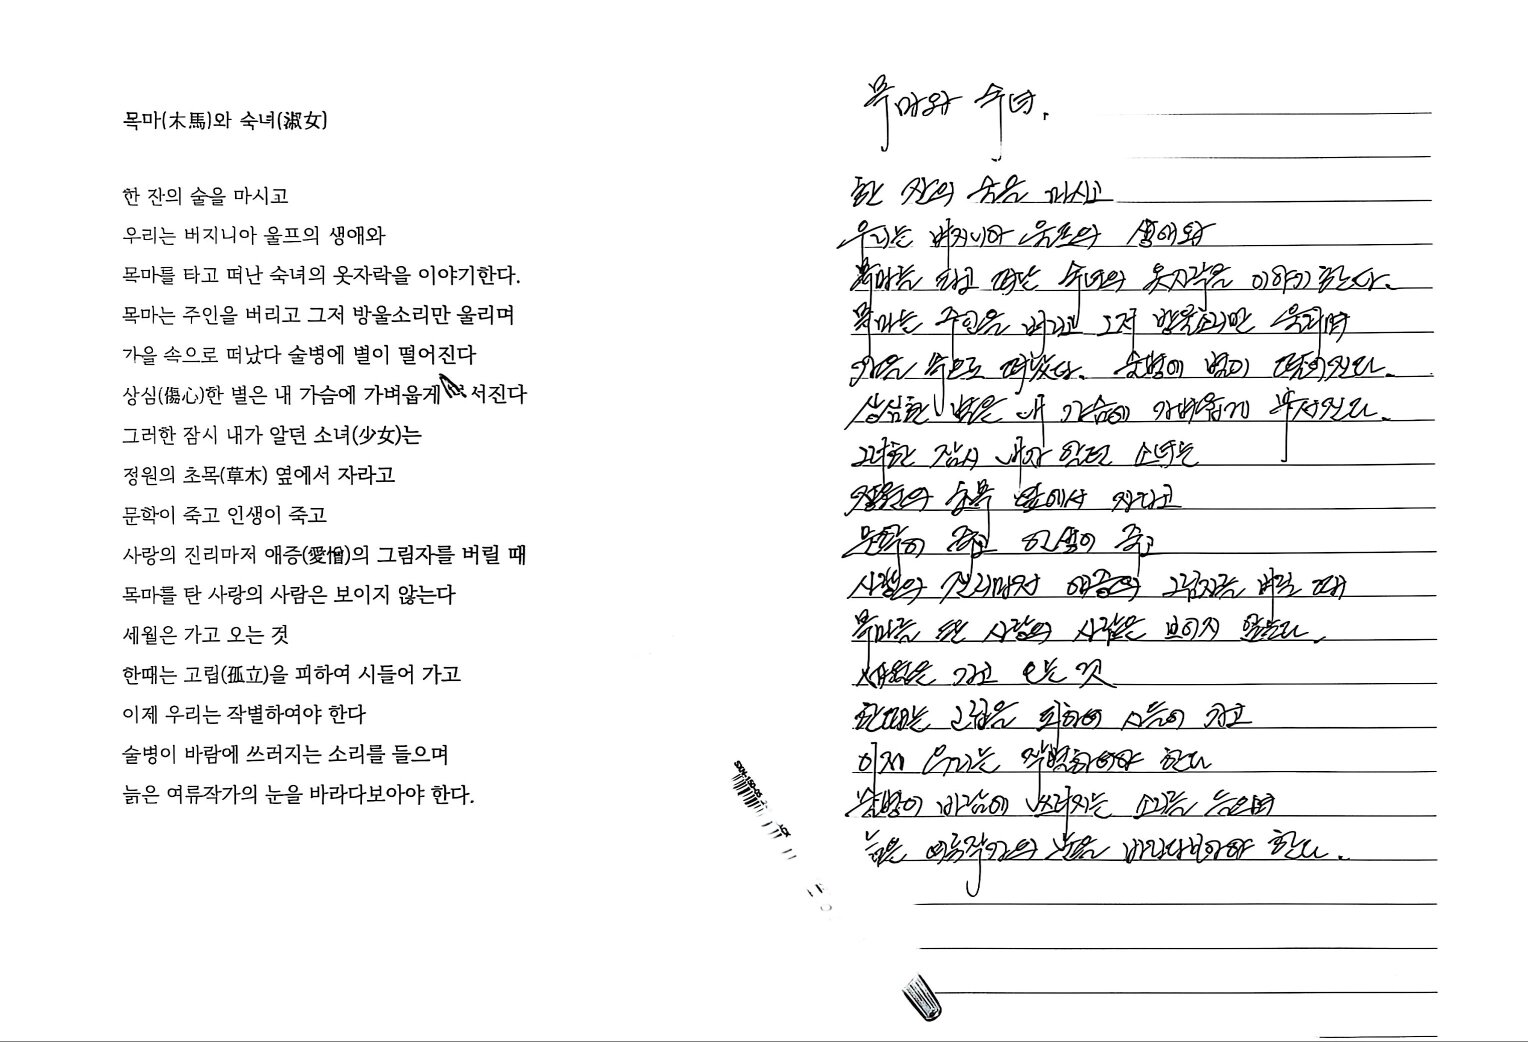 목마(木馬)와 숙녀(淑女)
한 잔의 술을 마시고
우리는 버지니아 울프의 생애와
목마를 타고 떠난 숙녀의 옷자락을 이야기한다.
목마는 주인을 버리고 그저 방울소리만 울리며
가을 속으로 떠났다 술병에 별이 떨어진다
상심(傷心)한 별은 내 가슴에 가벼웁게 서진다
그러한 잠시 내가 알던 소녀(少女)는
정원의 초목(草木) 옆에서 자라고
문학이 죽고 인생이 죽고
사랑의 진리마저 애증(愛憎)의 그림자를 버릴 때
목마를 탄 사랑의 사람은 보이지 않는다
세월은 가고 오는 것
한때는 고립(孤立)을 피하여 시들어 가고
이제 우리는 작별하여야 한다
술병이 바람에 쓰러지는 소리를 들으며
늙은 여류작가의 눈을 바라다보아야 한다.
목마와 숙녀.
한 잔의 술을 마시고
우리는 버지니아 울프의 생애와
목마를 타고 떠난 숙녀의 옷자락을 이야기한다.
목마는 주인을 버리고 그저 방울소리만 울리며
가을 속으로 떠났다. 술병에 별이 떨어진다.
상심한 별은 내 가슴에 가벼웁게 부서진다.
그러한 잠시 내가 알던 소녀는
정원의 초목 옆에서 자라고
문학이 죽고 인생이 죽고
사랑의 진리마저 애증의 그림자를 버릴 때
목마를 탄 사랑의 사람은 보이지 않는다.
세월은 가고 오는 것
한때는 고립을 피하여 시들어 가고
이제 우리는 작별하여야 한다
술병이 바람에 쓰러지는 소리를 들으며
늙은 여류작가의 눈을 바라다보아야 한다.